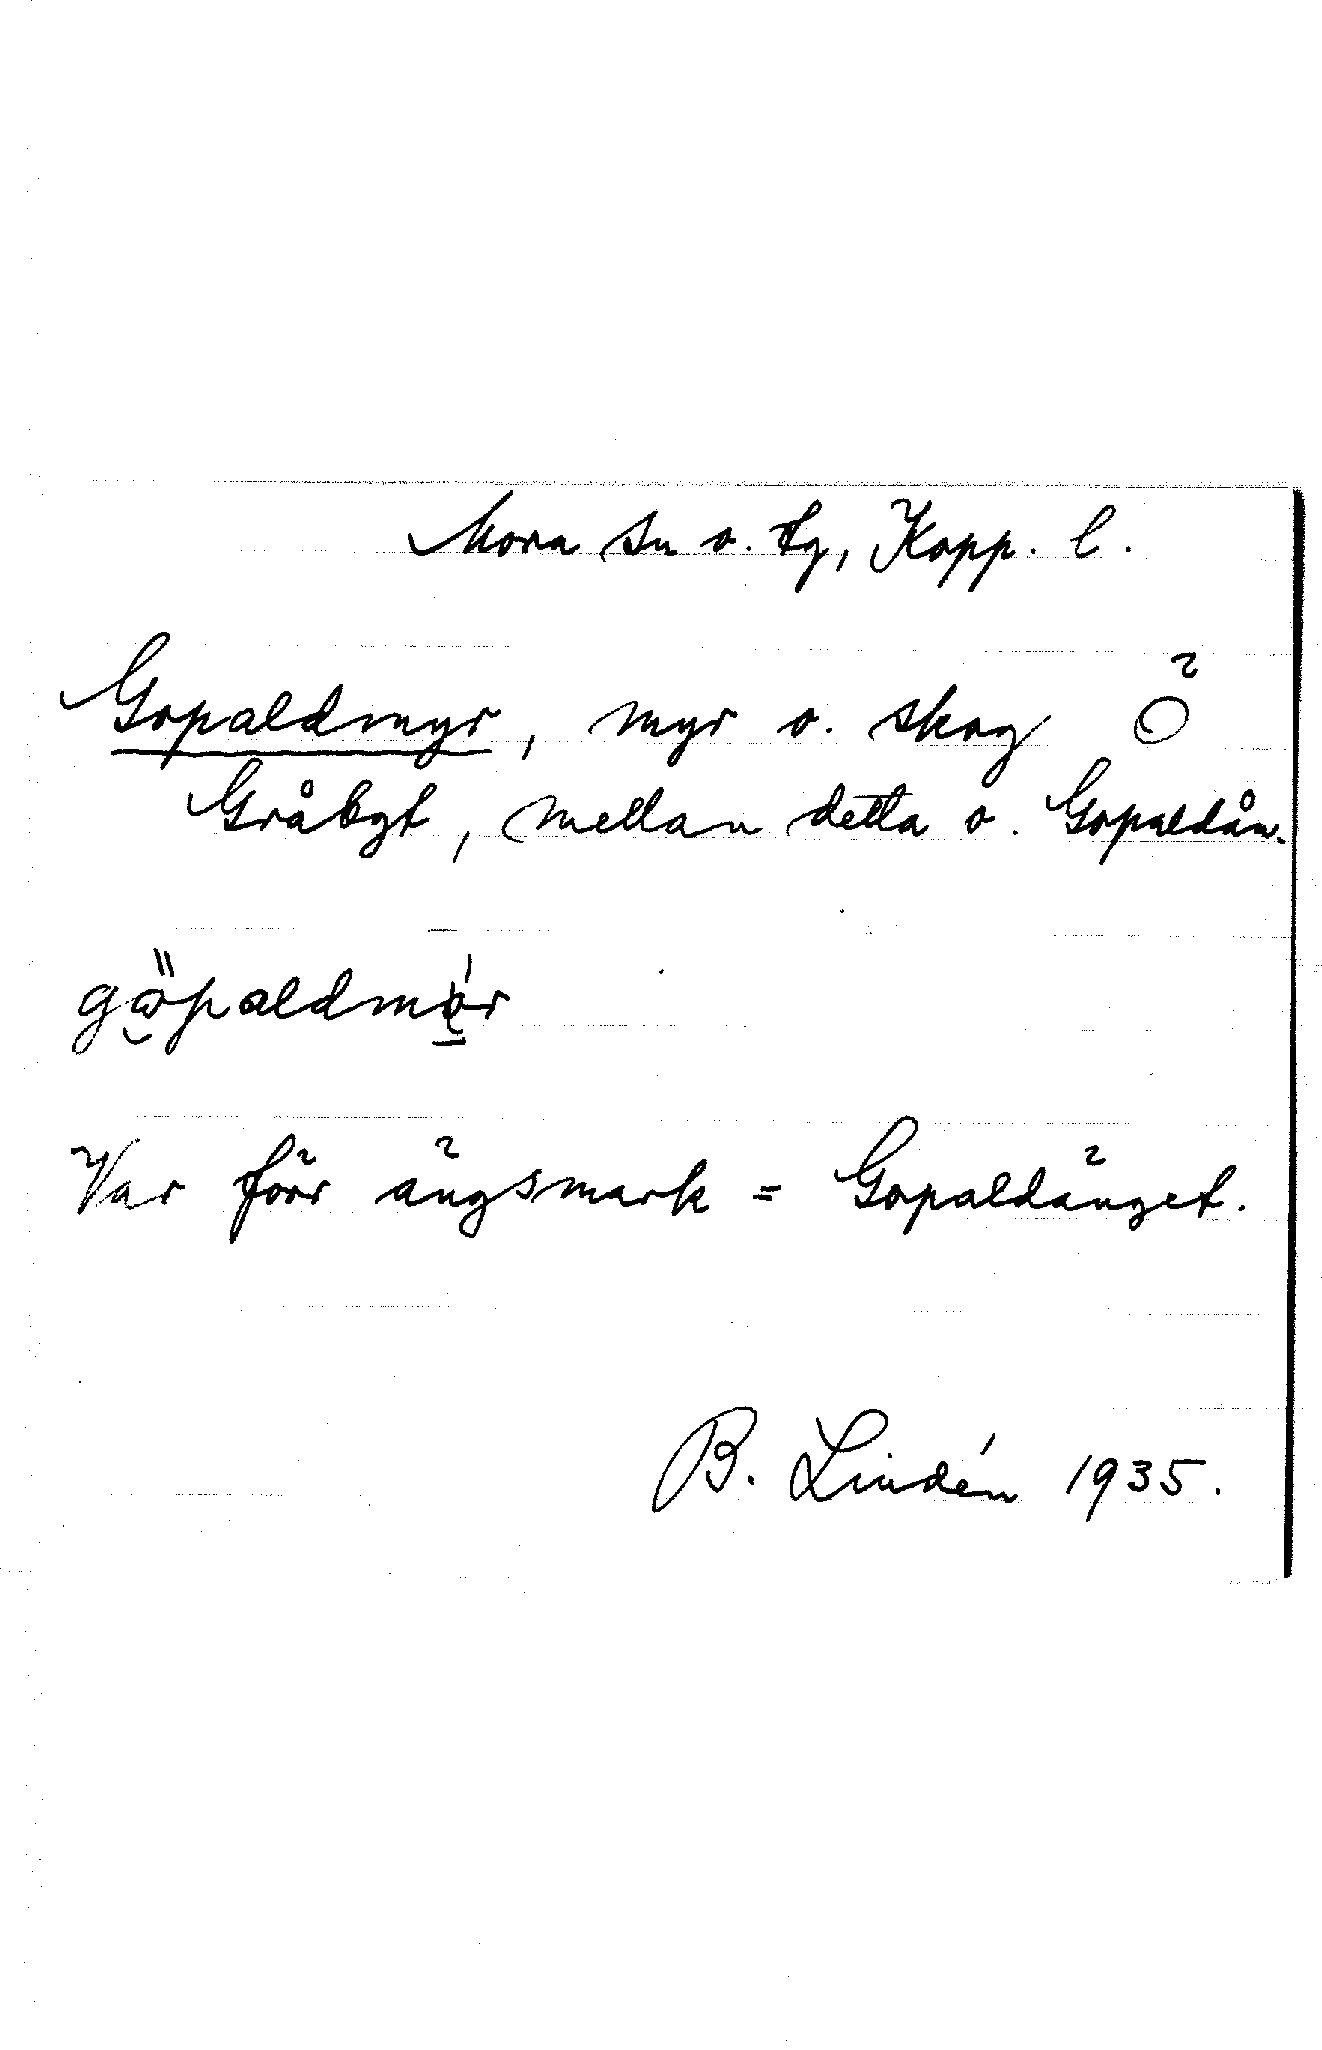 Mora sn o. tg, Kopp. l.
Gopaldmyr, myr o. skog Ö
Gråbyt, mellan detta o. Gopaldån.
Var förr ängsmark = Gopaldänget.
B. Lindén 1935.